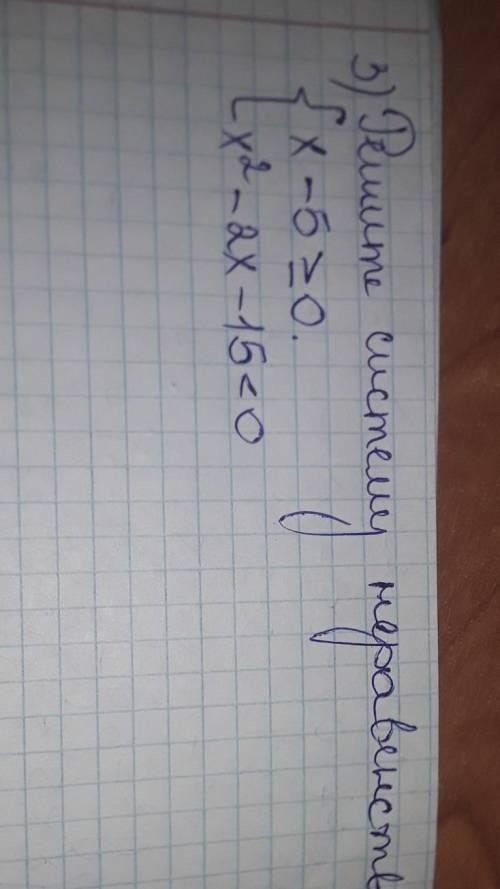 3) Решите систему неравенств
{ x - 5 ≥ 0.
x² - 2x - 15 < 0